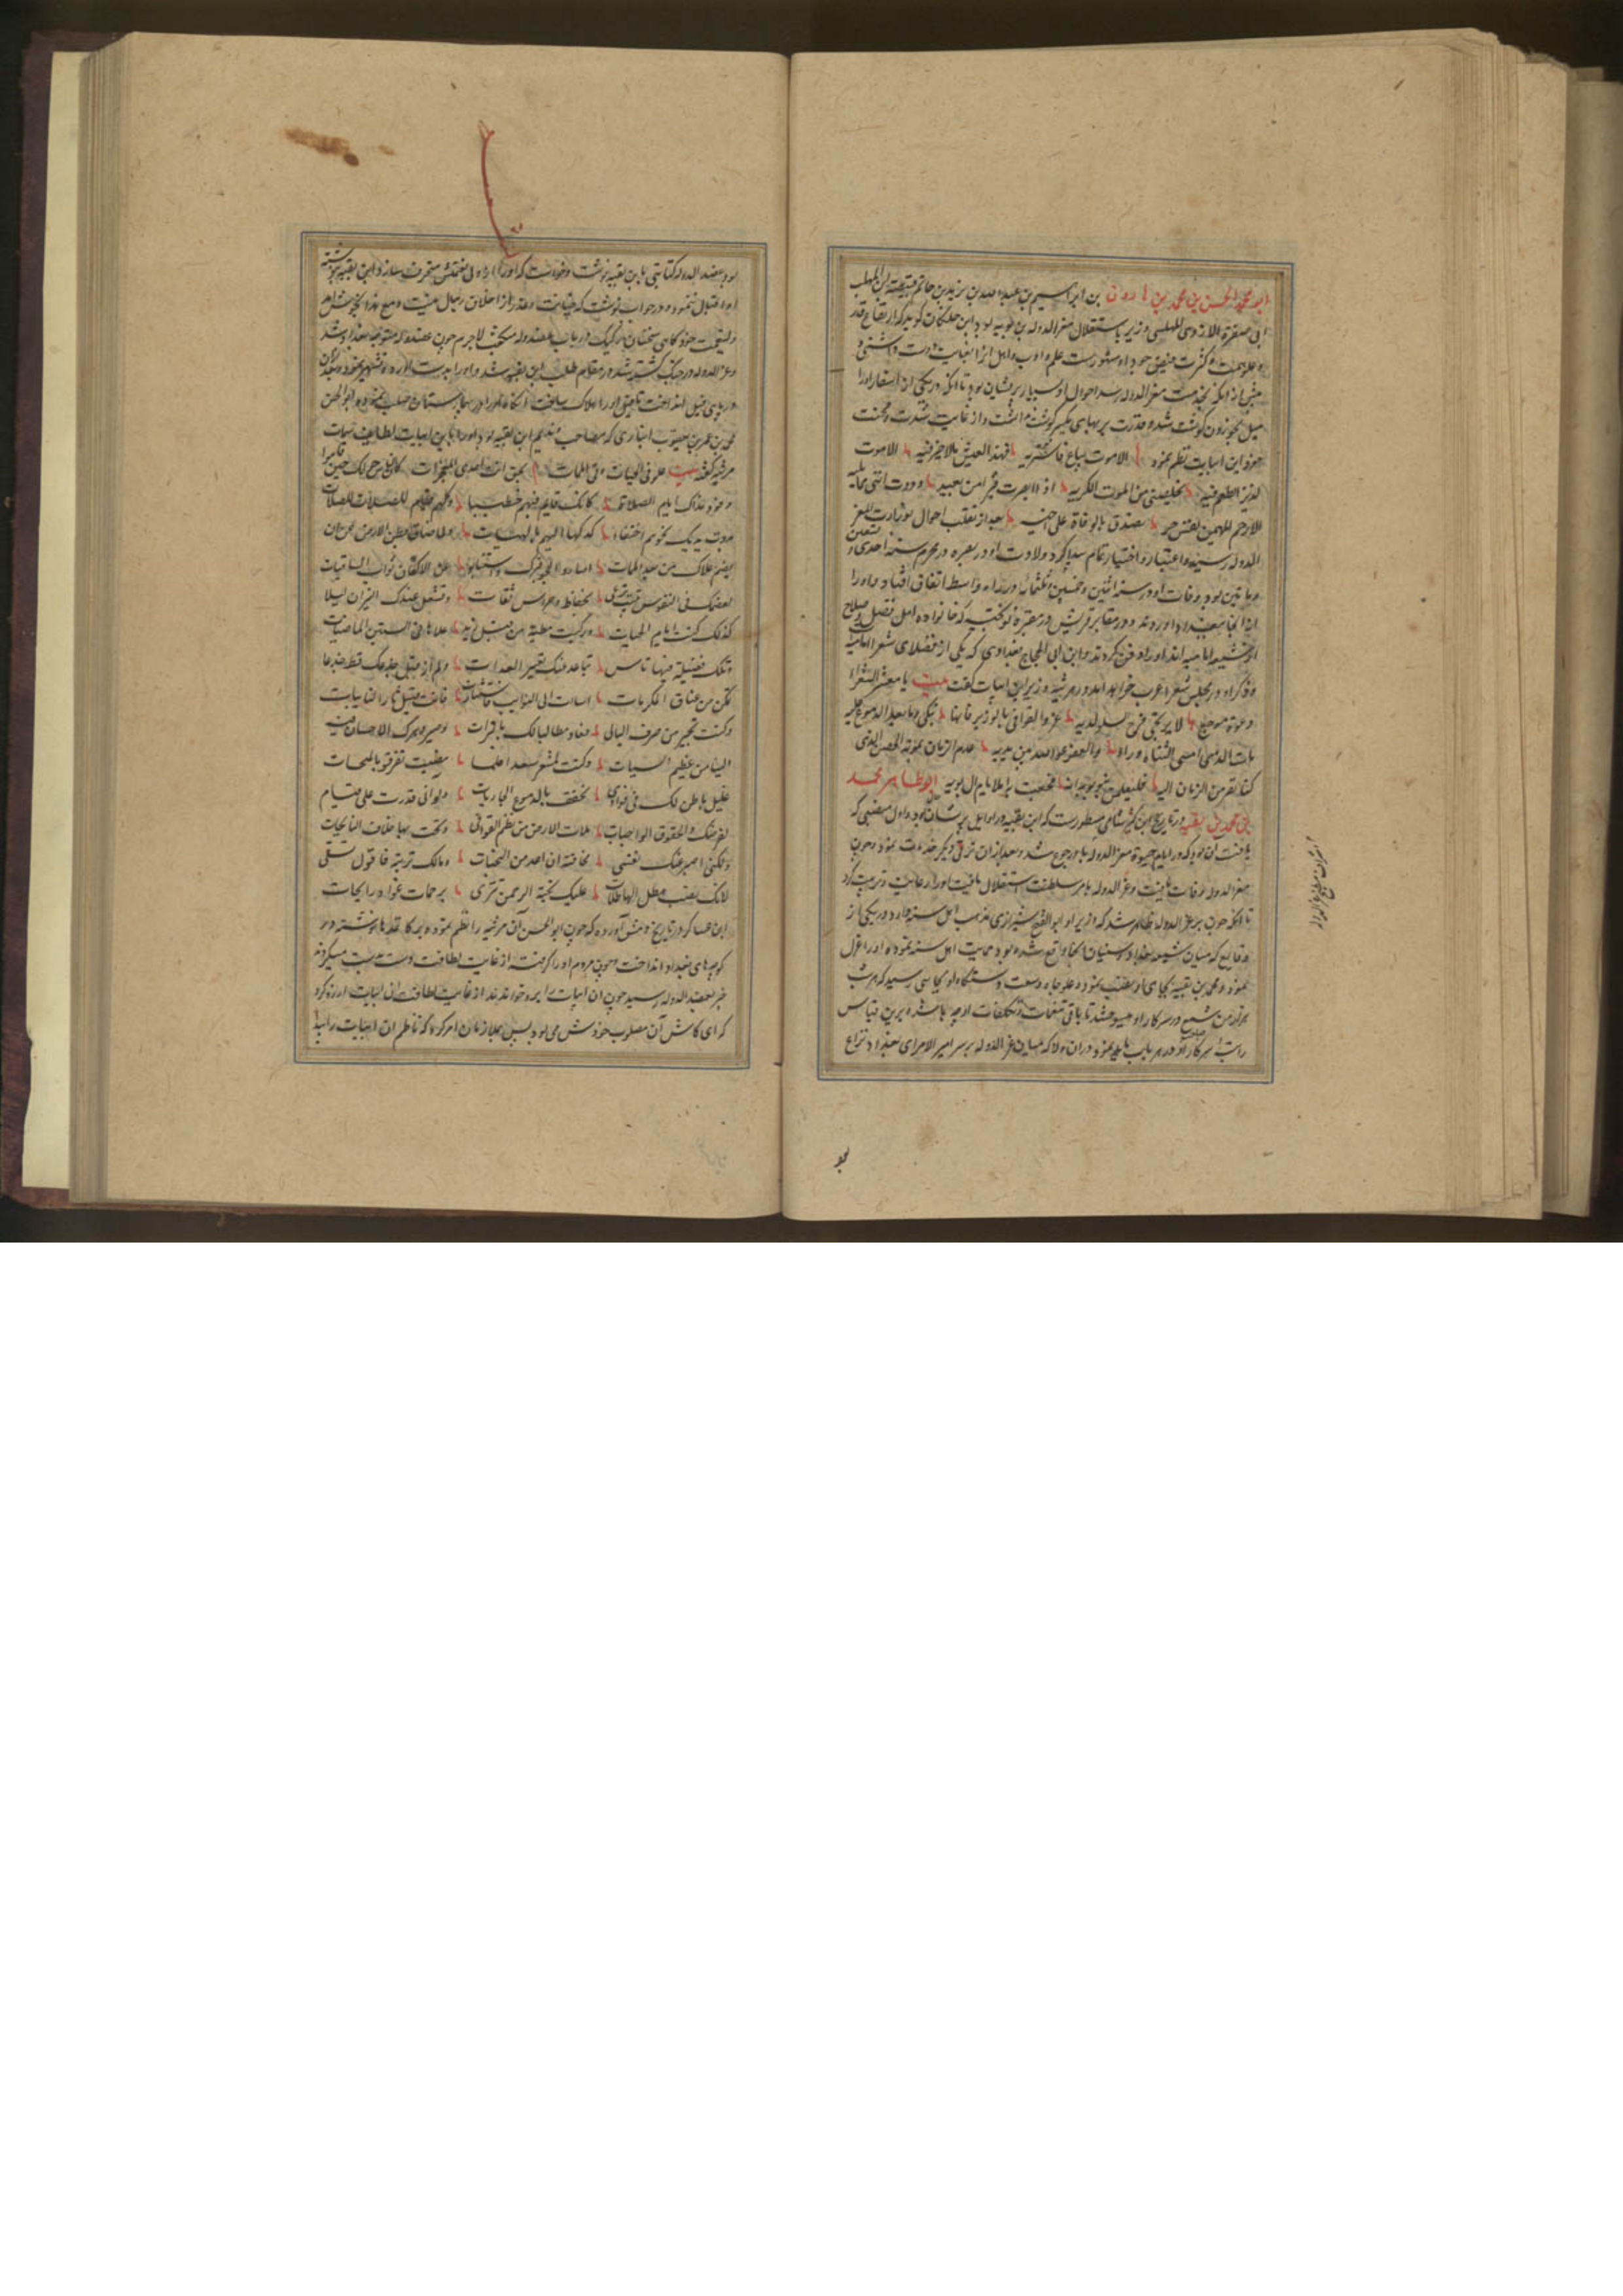 ابو محمد الحسن بن محمد بن هارون بن ابراهیم بن عبدالله بن یزید بن حاتم بن قبیصة بن المهلب
ابی صفرة الازدی المهلبی وزیر باستقلال معز الدوله بن بویه بود ابن خلکان گوید که از ارتفاع قدر
و علو همت و کثرت فیض جود او مشهورست علم و ادب و اهل انرا بغایت دوست داشتی و
پیش از انکه بخدمت معز الدوله رسد احوال او بسیار پریشان بود تا انکه در یکی از اسفار او را
میل بخوردن گوشت شده قدرت بر بهای گوشت نداشت و از غایت شدت و محنت
خود این ابیات نظم نمود الا موت یباع فاشتریه فهذا العیش مالا خیر فیه الا موت
لذیذ الطعم یخلصنی من الموت الکریه اذا ابصرت قبرا من بعید وددت اننی مما یلیه
الا رحم المهیمن نفس حر تصدق بالوفاة علی اخیه بعد از تقلب احوال بوزارت معز
الدوله رسید و اعتبار و اختیار تمام پیدا کرد و ولادت او در بصره در محرم سنه احدی و تسعین
و مأتین بود و وفات او در سنه اثنین و خمسین و ثلثمائه در راه واسط اتفاق افتاد و او را
از انجا ببغداد اوردند و در مقابر قریش در مقبره نوبختیه که خانواده اهل فضل و صلاح
از شیعه امامیه اند او را دفن کردند و ابن ابی الحجاج بغدادی که یکی از فضلای شعراء امامیه
و ذکر او در مجلس شعراء عرب خواهد امد در مرثیه وزیر این ابیات گفت بیت یا معشر الشعراء
دعوة موجع لا یرتجی فرج السلو لدیه عزوا القوافی بالوزیر فانها تبکی دما بعد الدموع علیه
مات الذی امسی الثناء وراءه والعفو عفو الله بین یدیه هدم الزمان بموته الحصن الذی
کنا نفر من الزمان الیه فلیعلمن بنو بویه انه فجعت به ایام ال بویه ابو طاهر محمد
بن محمد بن بقیه در تاریخ ابن کثیر شامی مسطورست که ابن بقیه در اوایل پریشان بود و اول منصبی که
یافت ان بود که در ایام حیوة معز الدوله باو رجوع شد و بعد از ان ترقی دیگر خدمات نمود و چون
معز الدوله وفات یافت و عز الدوله بامر سلطنت استقلال یافت او را رعایت و تربیت کرد
تا انکه چون بر عز الدوله ظاهر شد که وزیر او ابو الفتح شیرازی مذهب اهل سنه دارد و در یکی از
وقایع که میان شیعه بغداد و سنیان انجا واقع شده بود حمایت اهل سنه نموده او را عزل
نمود و محمد بن بقیه بجای او نصب نمود و علو جاه و وسعت دستگاه او بجایی رسید که هر شب
هزار من شمع در سرکار او میسوختند تا باقی تنعمات و تکلفات او چه باشد برین قیاس
راتبه سرکار او در هر باب باید نمود در ان ولا که میان عز الدوله بر سر امیر الامرای بغداد نزاع
بود عضد الدوله کتابتی بابن بقیه نوشت و خواست که او را از ولی نعمتش منحرف سازد ابن بقیه نوشته
او را قبول ننمود و در جواب نوشت که خیانت و غدر از اخلاق رجال نیست و مع هذا
و عز الدوله در جنگ کشته شد در مقام طلب ابن بقیه شد و او را بدست اورده تشهیر نمود و بعد از ان
در پای فیل انداخت تا فیل او را هلاک ساخت انگاه او را در بیمارستان صلب نمود و ابو الحسن
محمد بن عمر بن یعقوب انباری که مصاحب و ندیم ابن بقیه بود او را باین ابیات لطایف سمات
مرثیه گفته بیت علو فی الحیات و فی الممات بحق انت احدی المعجزات کان الناس حولک حین قاموا
وفود نداک ایام الصلات کانک قایم فیهم خطیبا وکلهم قیام للصلات
مددت یدیک نحوهم احتفاء کمدکها الیهم بالهبات ولما ضاق بطن الارض عن ان
یضم علاک من بعد الممات اصاروا الجو قبرک واستنابوا عن الاکفان ثوب السافیات
لعظمک فی النفوس تبیت ترعی بحفاظ وحراس ثقات وتشعل عندک النیران لیلا
کذلک کنت ایام الحیات رکبت مطیة من قبل زید علاها فی السنین الماضیات
وتلک فضیلة فیها تاس تباعد عنک تعییر العدات ولم ار قبل جذعک قط جذعا
تمکن من عناق المکرمات اسات الی النوایب فاستثارت فانت قتیل ثار النایبات
وکنت تجیر من صرف اللیالی فعاد مطالبا لک بالترات وصیر دهرک الاحسان فیه
الینا من عظیم السیات وکنت لمعشر سعدا فلما مضیت تفرقوا بالمنحسات
غلیل باطن لک فی فوادی یخفف بالدموع الجاریات ولو انی قدرت علی قیام
لفرضک والحقوق الواجبات ملات الارض من نظم القوافی ونحت بها خلاف النایحات
ولکنی اصبر عنک نفسی مخافة ان اعد من الجنات ومالک تربة فاقول تسقی
لانک نصب هطل الهاطلات علیک تحیة الرحمن تتری برحمات غواد رایحات
ابن عساکر در تاریخ دمشق آورده که چون ابو الحسن آن مرثیه را نظم نموده بر کاغذها نوشته در
کوچه های بغداد انداخت و چون مردم او را گرفتند از غایت لطافت دست بدست میگردند
خبر بعضد الدوله رسید چون ان ابیات را برو خواندند از غایت لطافت ان ابیات ارزو کرد
که ای کاش آن مصلوب خودش می بود پس بملازمان امر کرد که ناظم ان ابیات را پیدا